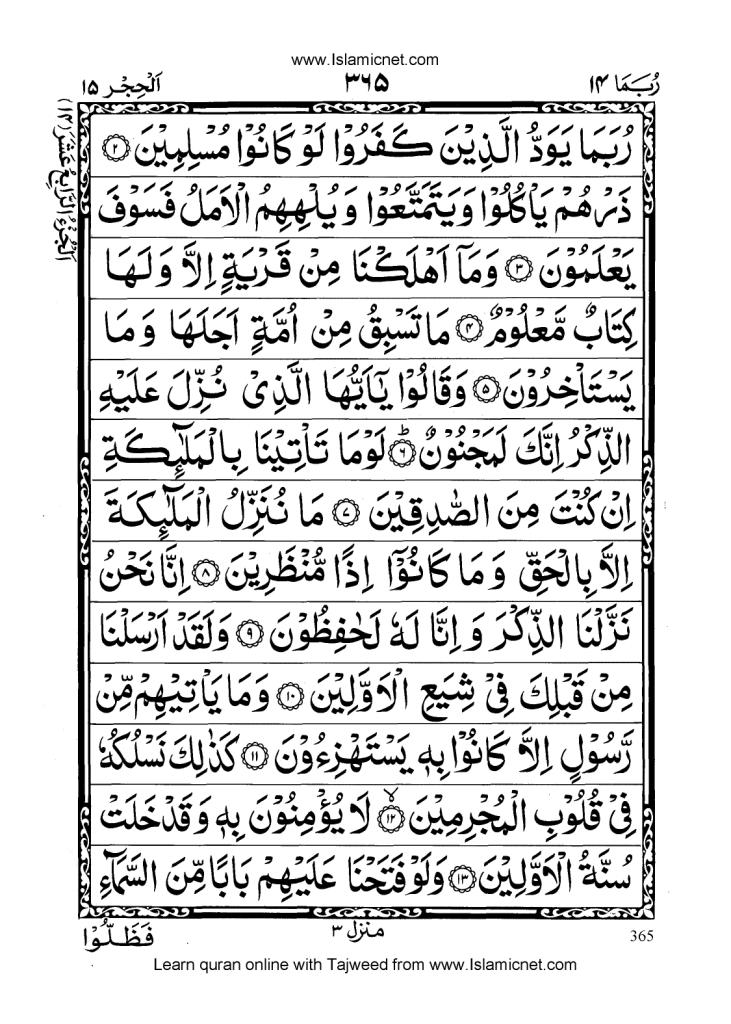 www.Islamicnet.com
رُبَمَا ۱۴
۳۶۵
اَلْحِجْر ۱۵
اَلْجُزْءُ الرَّابِعُ عَشَرَ (۱۴)
رُبَمَا يَوَدُّ الَّذِيْنَ كَفَرُوْا لَوْ كَانُوْا مُسْلِمِيْنَ ۲
ذَرْهُمْ يَاْكُلُوْا وَيَتَمَتَّعُوْا وَيُلْهِهِمُ الْاَمَلُ فَسَوْفَ
يَعْلَمُوْنَ ۳ وَمَاۤ اَهْلَكْنَا مِنْ قَرْيَةٍ اِلَّا وَلَهَا
كِتَابٌ مَّعْلُوْمٌ ۴ مَا تَسْبِقُ مِنْ اُمَّةٍ اَجَلَهَا وَمَا
يَسْتَاْخِرُوْنَ ۵ وَقَالُوْا يٰۤاَيُّهَا الَّذِيْ نُزِّلَ عَلَيْهِ
الذِّكْرُ اِنَّكَ لَمَجْنُوْنٌ ۶ؕ لَوْمَا تَاْتِيْنَا بِالْمَلٰٓئِكَةِ
اِنْ كُنْتَ مِنَ الصّٰدِقِيْنَ ۷ مَا نُنَزِّلُ الْمَلٰٓئِكَةَ
اِلَّا بِالْحَقِّ وَمَا كَانُوْۤا اِذًا مُّنْظَرِيْنَ ۸ اِنَّا نَحْنُ
نَزَّلْنَا الذِّكْرَ وَاِنَّا لَهٗ لَحٰفِظُوْنَ ۹ وَلَقَدْ اَرْسَلْنَا
مِنْ قَبْلِكَ فِيْ شِيَعِ الْاَوَّلِيْنَ ۱۰ وَمَا يَاْتِيْهِمْ مِّنْ
رَّسُوْلٍ اِلَّا كَانُوْا بِهٖ يَسْتَهْزِءُوْنَ ۱۱ كَذٰلِكَ نَسْلُكُهٗ
فِيْ قُلُوْبِ الْمُجْرِمِيْنَ ۱۲ۙ لَا يُؤْمِنُوْنَ بِهٖ وَقَدْ خَلَتْ
سُنَّةُ الْاَوَّلِيْنَ ۱۳ وَلَوْ فَتَحْنَا عَلَيْهِمْ بَابًا مِّنَ السَّمَآءِ
365
منزل ۳
فَظَلُّوْا
Learn quran online with Tajweed from www.Islamicnet.com